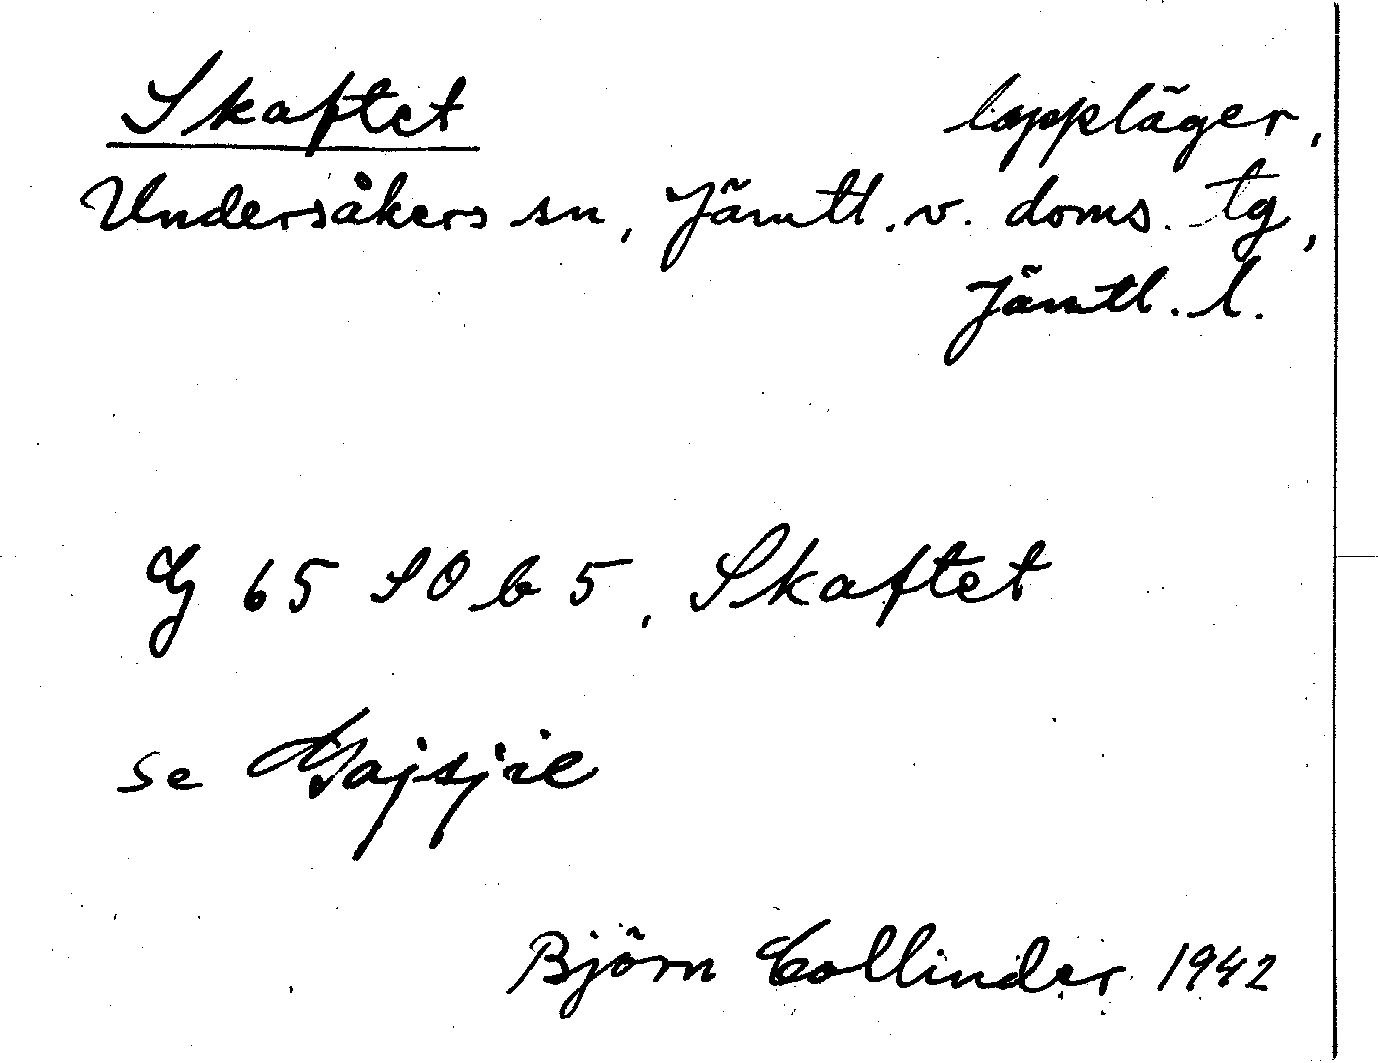 Skaftet lappläger,
Undersåkers sn, Jämtl. v. doms. tg,
Jämtl. l.
G 65 SO b 5, Skaftet
se Gajsjie
Björn Collinder 1942